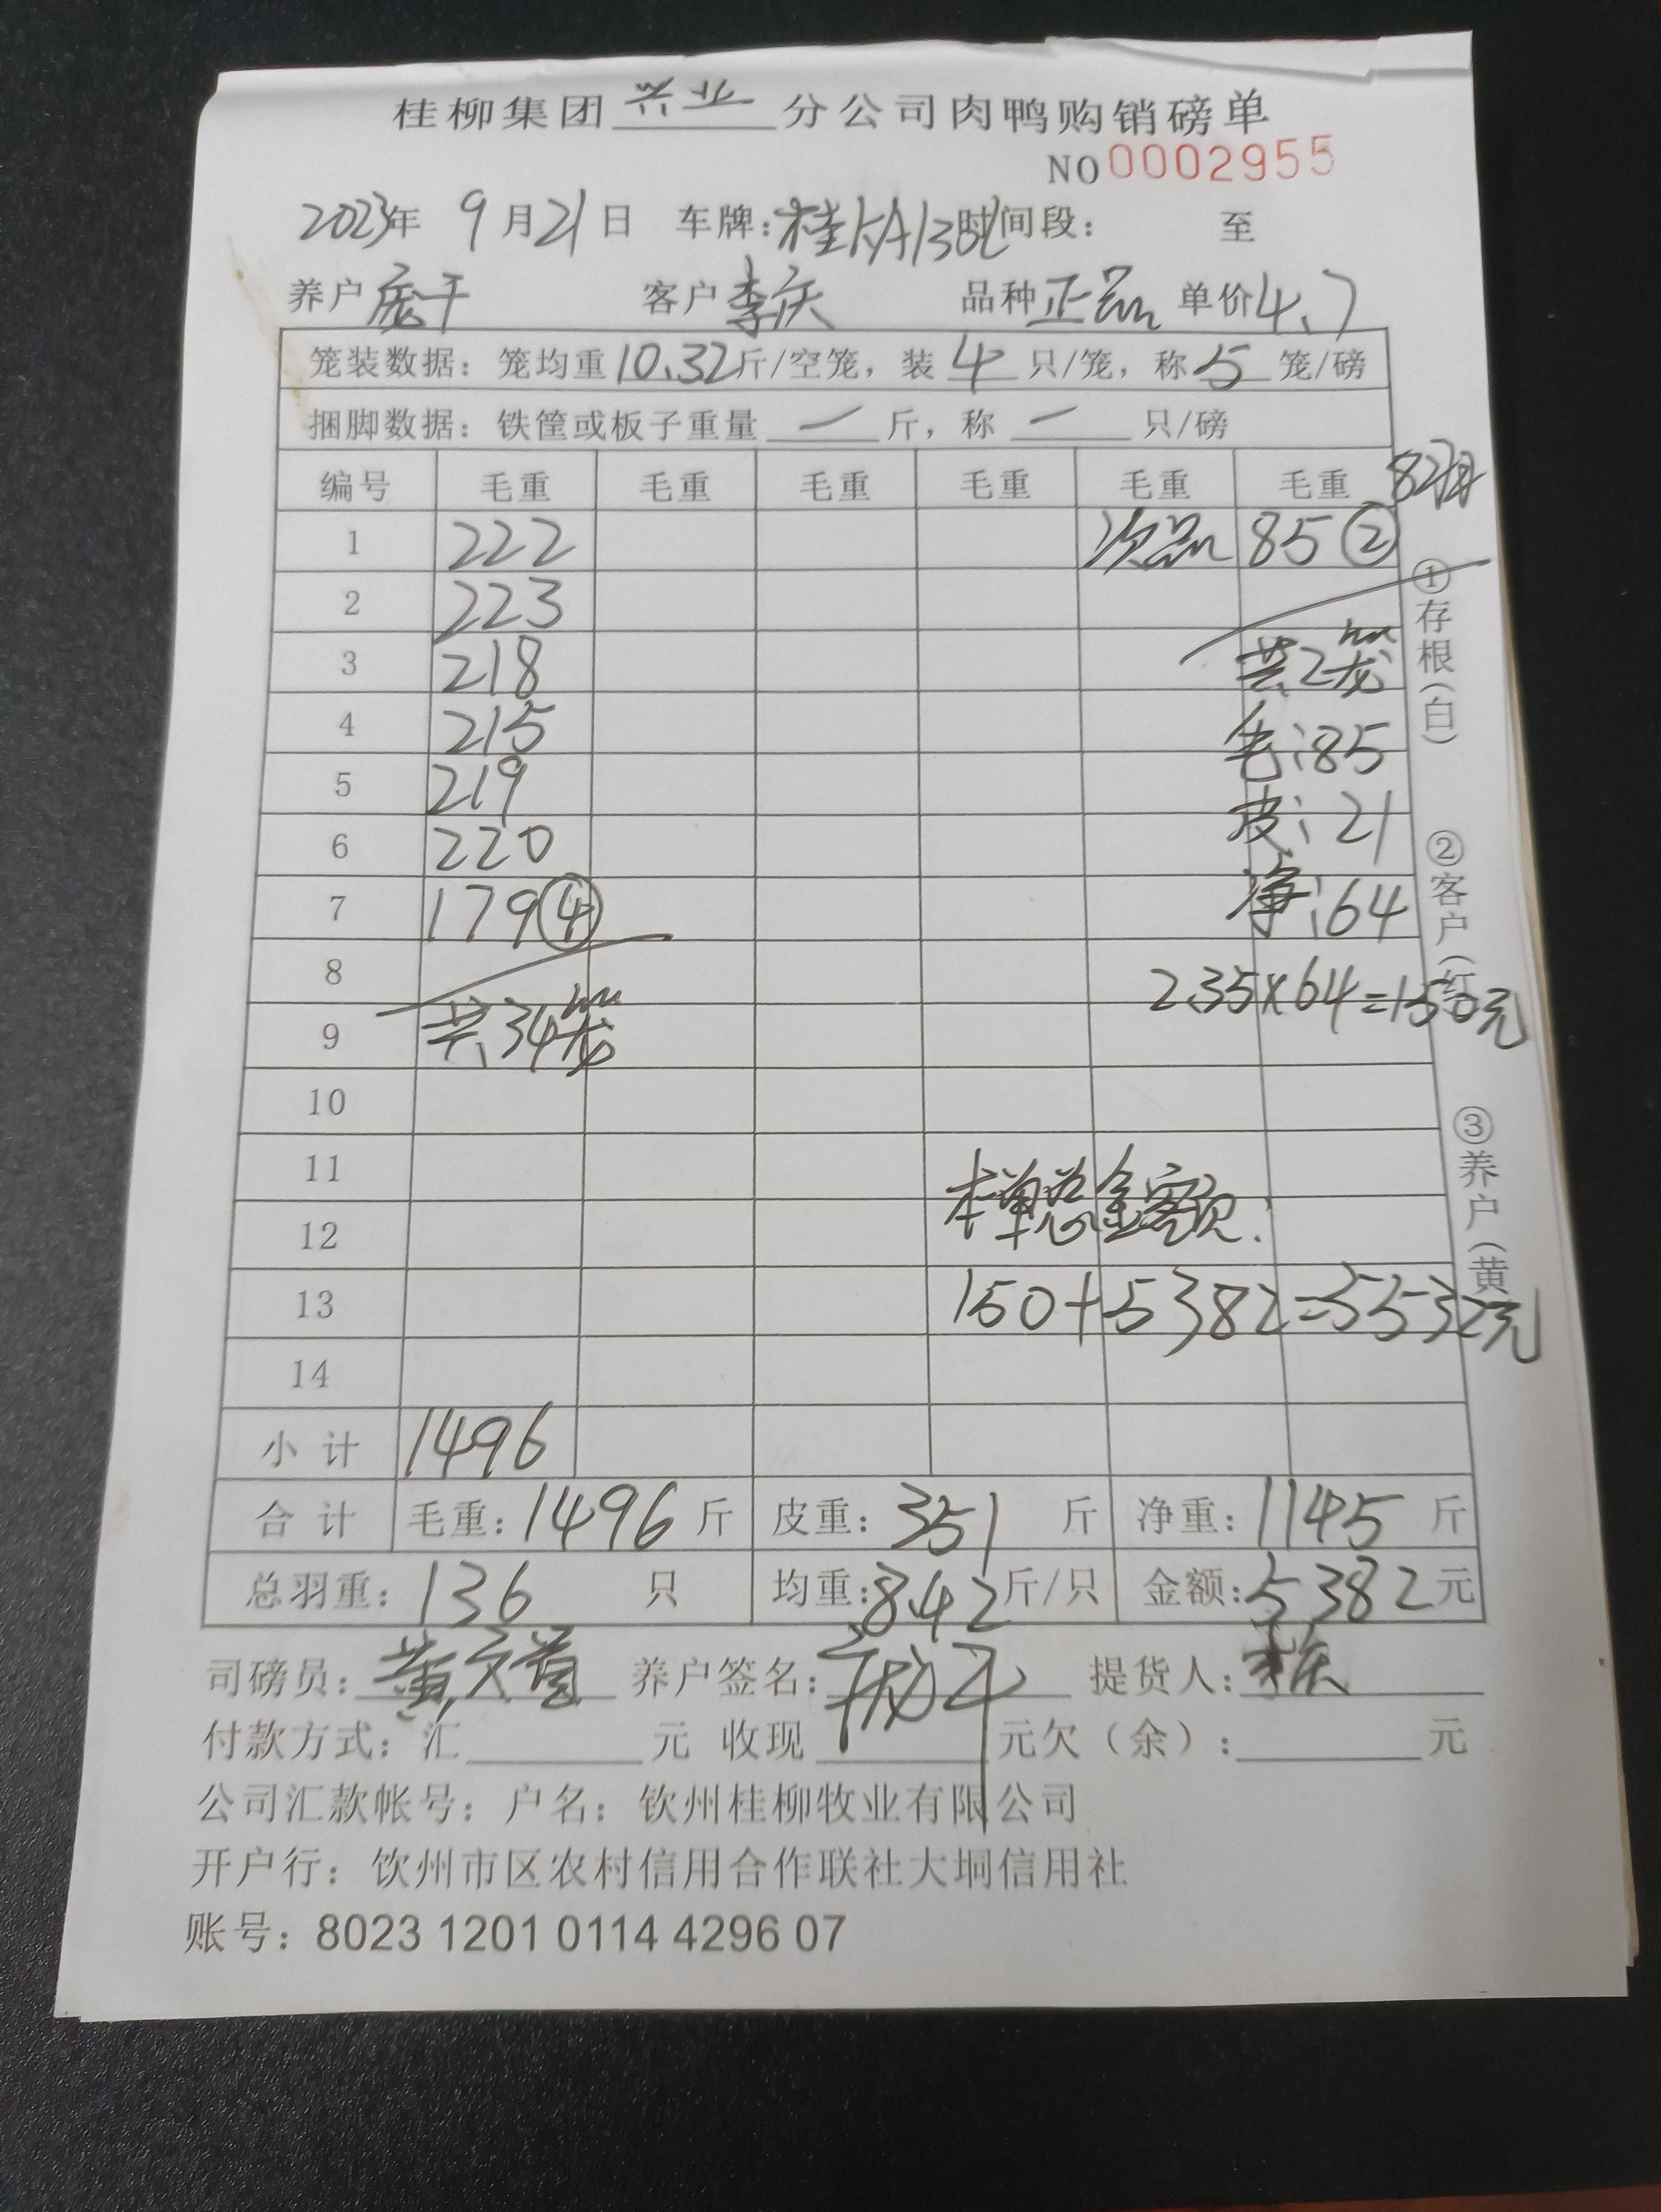 桂柳集团 兴业 分公司肉鸭购销磅单
NO 0002955
2023年 9月21日 车牌:桂KA138L 时间段: 至
养户 庞干 客户 李庆 品种 正品 单价 4.7
笼装数据: 笼均重 10.32 斤/空笼, 装 4 只/笼, 称 5 笼/磅
捆脚数据: 铁筐或板子重量 — 斤, 称 — 只/磅
编号 毛重 毛重 毛重 毛重 毛重 毛重
1 222 次品 85 ②
2 223
3 218 共2笼
4 215 毛:85
5 219 皮:21
6 220 净:64
7 179 ④
8 2.35×64=150元
9 共34笼
10
11 本单总金额:
12
13 150+5382=5532元
14
小计 1496
合计 毛重: 1496 斤 皮重: 351 斤 净重: 1145 斤
总羽重: 136 只 均重: 8.42 斤/只 金额: 5382 元
司磅员: 养户签名: 提货人: 李庆
付款方式: 汇 元 收现 元欠(余): 元
公司汇款帐号: 户名: 钦州桂柳牧业有限公司
开户行: 饮州市区农村信用合作联社大垌信用社
账号: 8023 1201 0114 4296 07
①存根(白)
②客户(红)
③养户(黄)